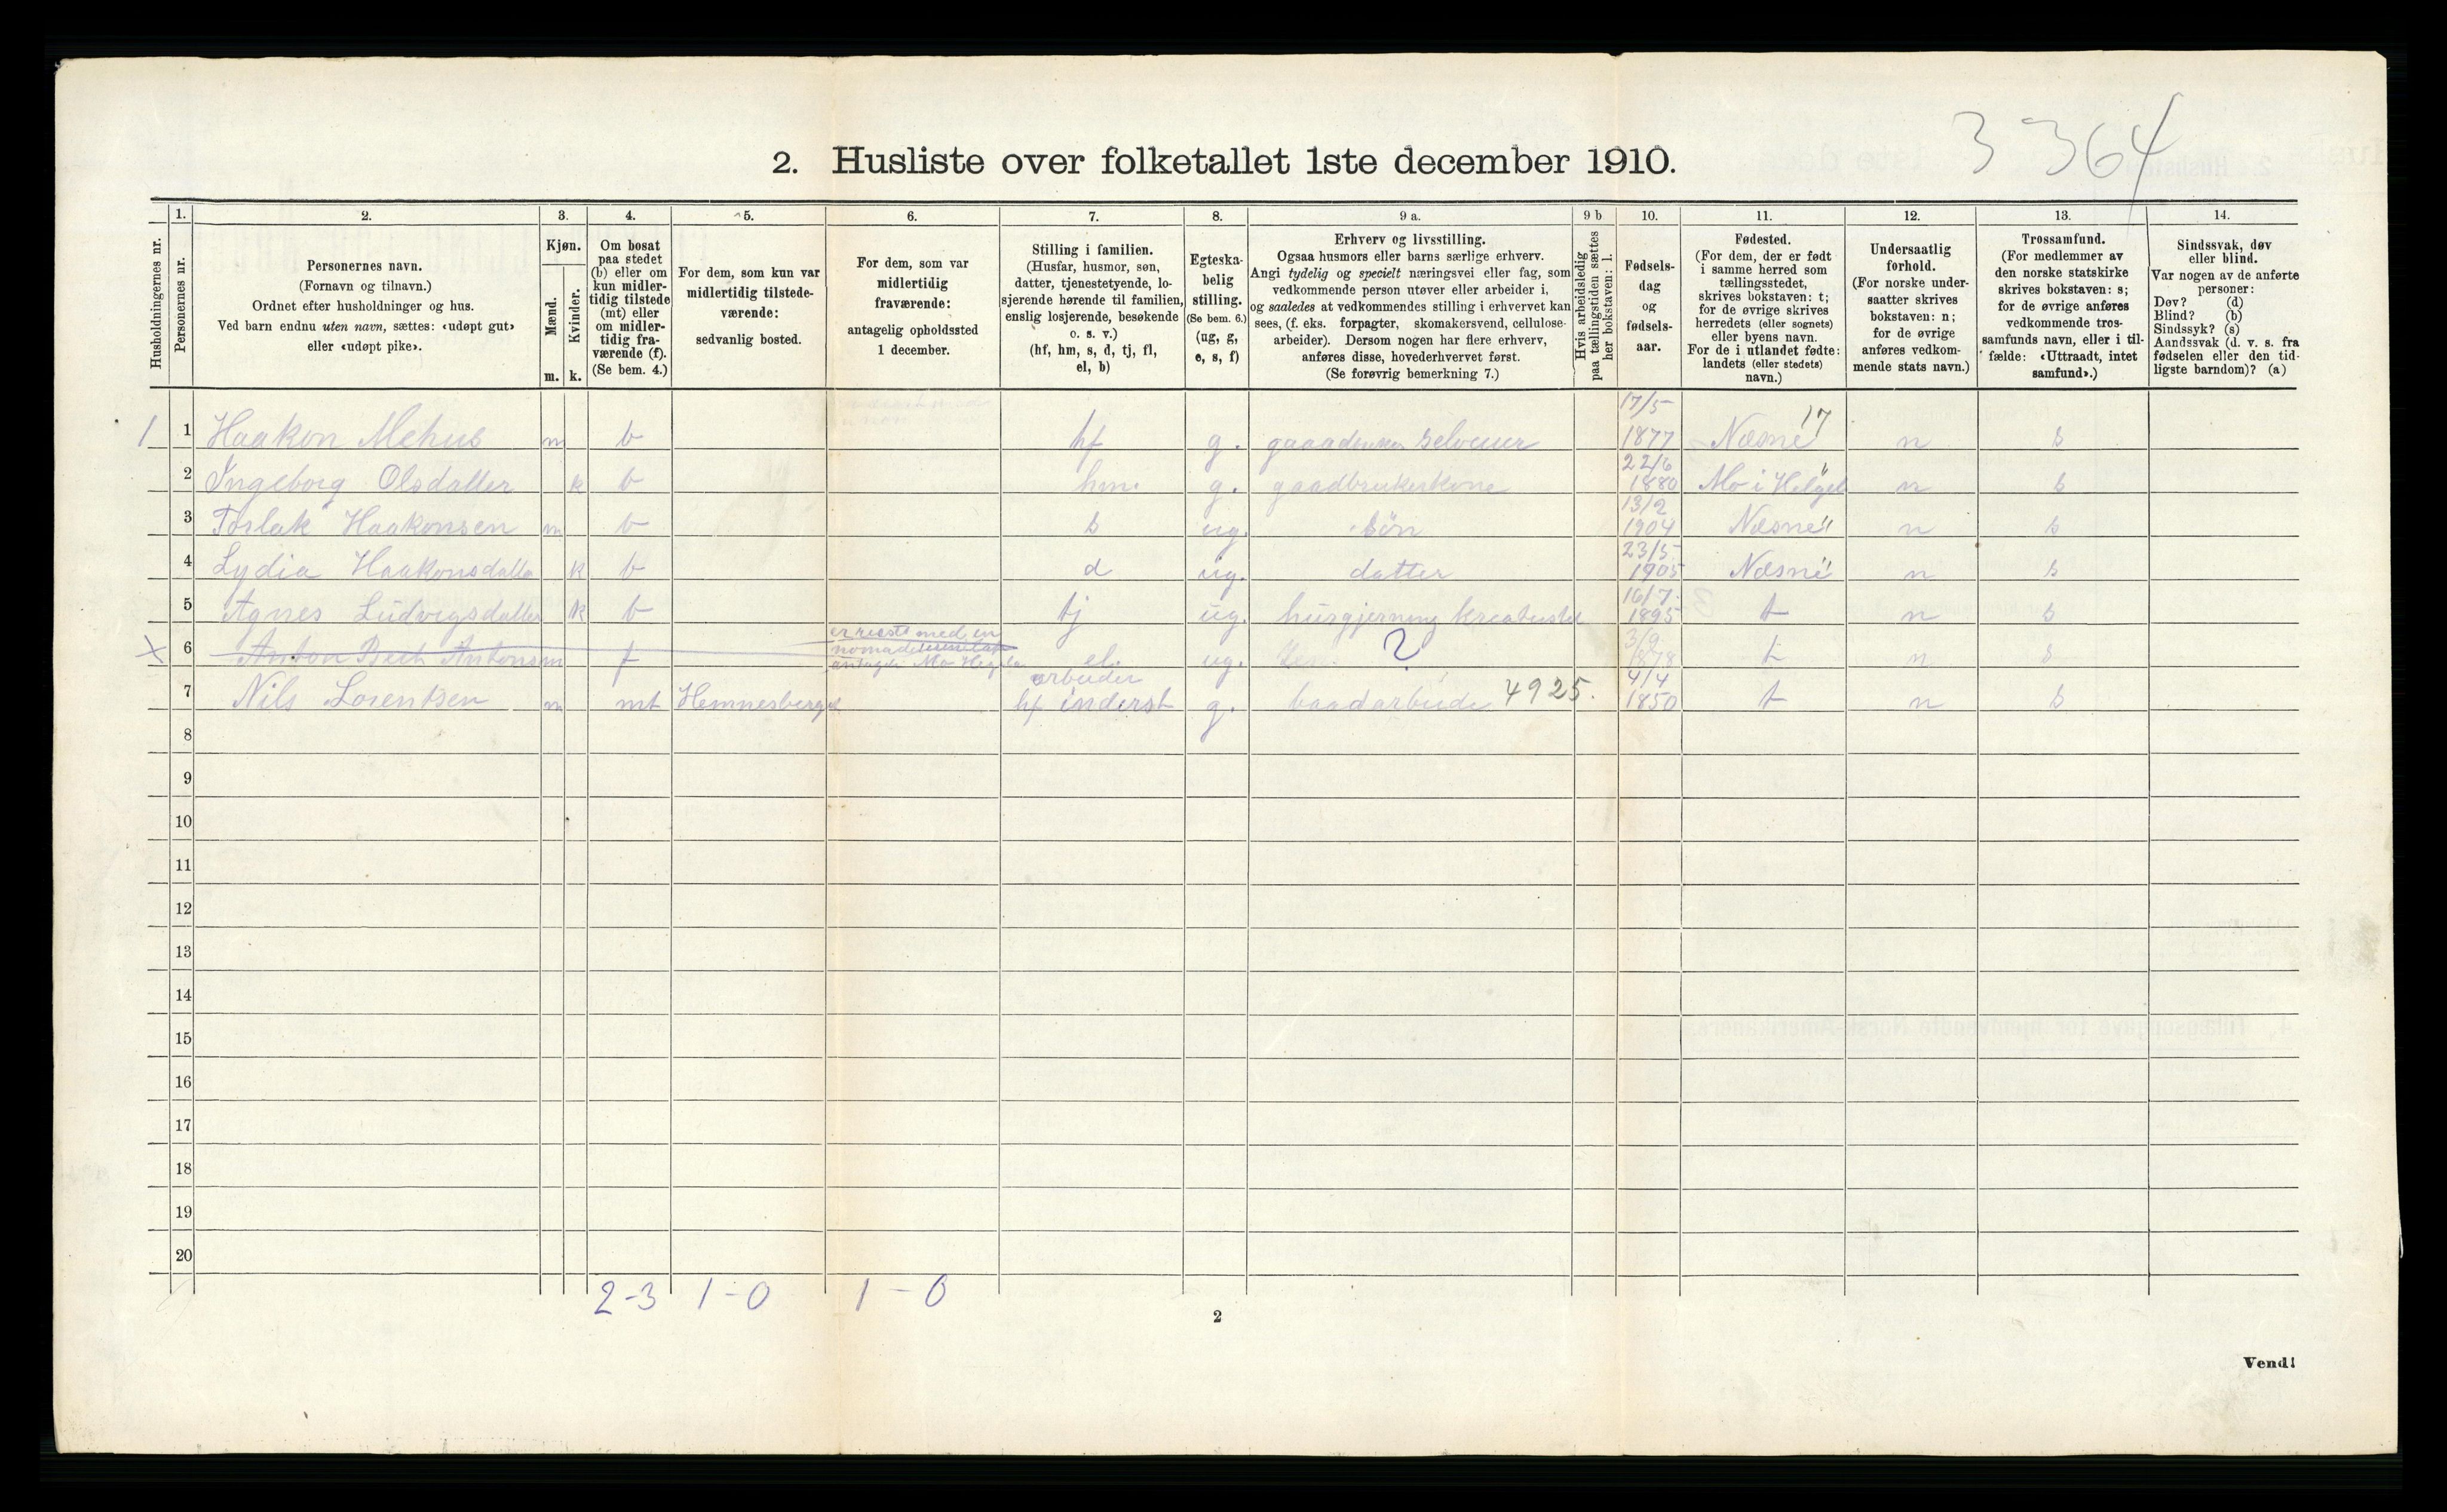 3 364
2. Husliste over folketallet 1ste december 1910.
Husholdningernes nr.
1.
Personernes nr.
2.
Personernes navn.
(Fornavn og tilnavn.)
Ordnet efter husholdninger og hus.
Ved barn endnu uten navn, sættes: «udøpt gut»
eller «udøpt pike».
3.
Kjøn.
Mænd.
m.
Kvinder.
k.
4.
Om bosat
paa stedet
(b) eller om
kun midler-
tidig tilstede
(mt) eller
om midler-
tidig fra-
værende (f).
(Se bem. 4.)
5.
For dem, som kun var
midlertidig tilstede-
værende:
sedvanlig bosted.
6.
For dem, som var
midlertidig
fraværende:
antagelig opholdssted
1 december.
7.
Stilling i familien.
(Husfar, husmor, søn,
datter, tjenestetyende, lo-
sjerende hørende til familien,
enslig losjerende, besøkende
o. s. v.)
(hf, hm, s, d, tj, fl,
el, b)
8.
Egteska-
belig
stilling.
(Se bem. 6.)
(ug, g,
e, s, f)
9 a.
Erhverv og livsstilling.
Ogsaa husmors eller barns særlige erhverv.
Angi tydelig og specielt næringsvei eller fag, som
vedkommende person utøver eller arbeider i,
og saaledes at vedkommendes stilling i erhvervet kan
sees, (f. eks. forpagter, skomakersvend, cellulose-
arbeider). Dersom nogen har flere erhverv,
anføres disse, hovederhvervet først.
(Se forøvrig bemerkning 7.)
9 b
Hvis arbeidsledig
paa tællingstiden sættes
her bokstaven: l.
10.
Fødsels-
dag
og
fødsels-
aar.
11.
Fødested.
(For dem, der er født
i samme herred som
tællingsstedet,
skrives bokstaven: t;
for de øvrige skrives
herredets (eller sognets)
eller byens navn.
For de i utlandet fødte:
landets (eller stedets)
navn.)
12.
Undersaatlig
forhold.
(For norske under-
saatter skrives
bokstaven: n;
for de øvrige
anføres vedkom-
mende stats navn.)
13.
Trossamfund.
(For medlemmer av
den norske statskirke
skrives bokstaven: s;
for de øvrige anføres
vedkommende tros-
samfunds navn, eller i til-
fælde: «Uttraadt, intet
samfund».)
14.
Sindssvak, døv
eller blind.
Var nogen av de anførte
personer:
Døv? (d)
Blind? (b)
Sindssyk? (s)
Aandssvak (d. v. s. fra
fødselen eller den tid-
ligste barndom)? (a)
1 1 Haakon Mehus m b hf g. selveier 17/5 1877 Næsne 17 n s
2 Ingeborg Olsdatter k b hm. g. gaadbrukerkone 22/6 1880 Mo i Helgel " n s
3 Torlak Haakonsen m b s ug. søn 13/2 1904 Næsne " n s
4 Lydia Haakonsdatte k b d ug. datter 23/5 1905 Næsne " n s
5 Agnes Ludvigsdatter k b tj ug. husgjerning kreaturstel 16/7 1895 t n s
X 6 Anton Antons m f er reist med en el. ug. ? 3/9 1878 t n s
7 Nils Lorentsen m mt Hemnesberget arbeider hf inderst g. baadarbeide 4925. 4/4 1850 t n s
8
9
10
11
12
13
14
15
16
17
18
19
20
2-3 1-0 1-0
2
Vend!